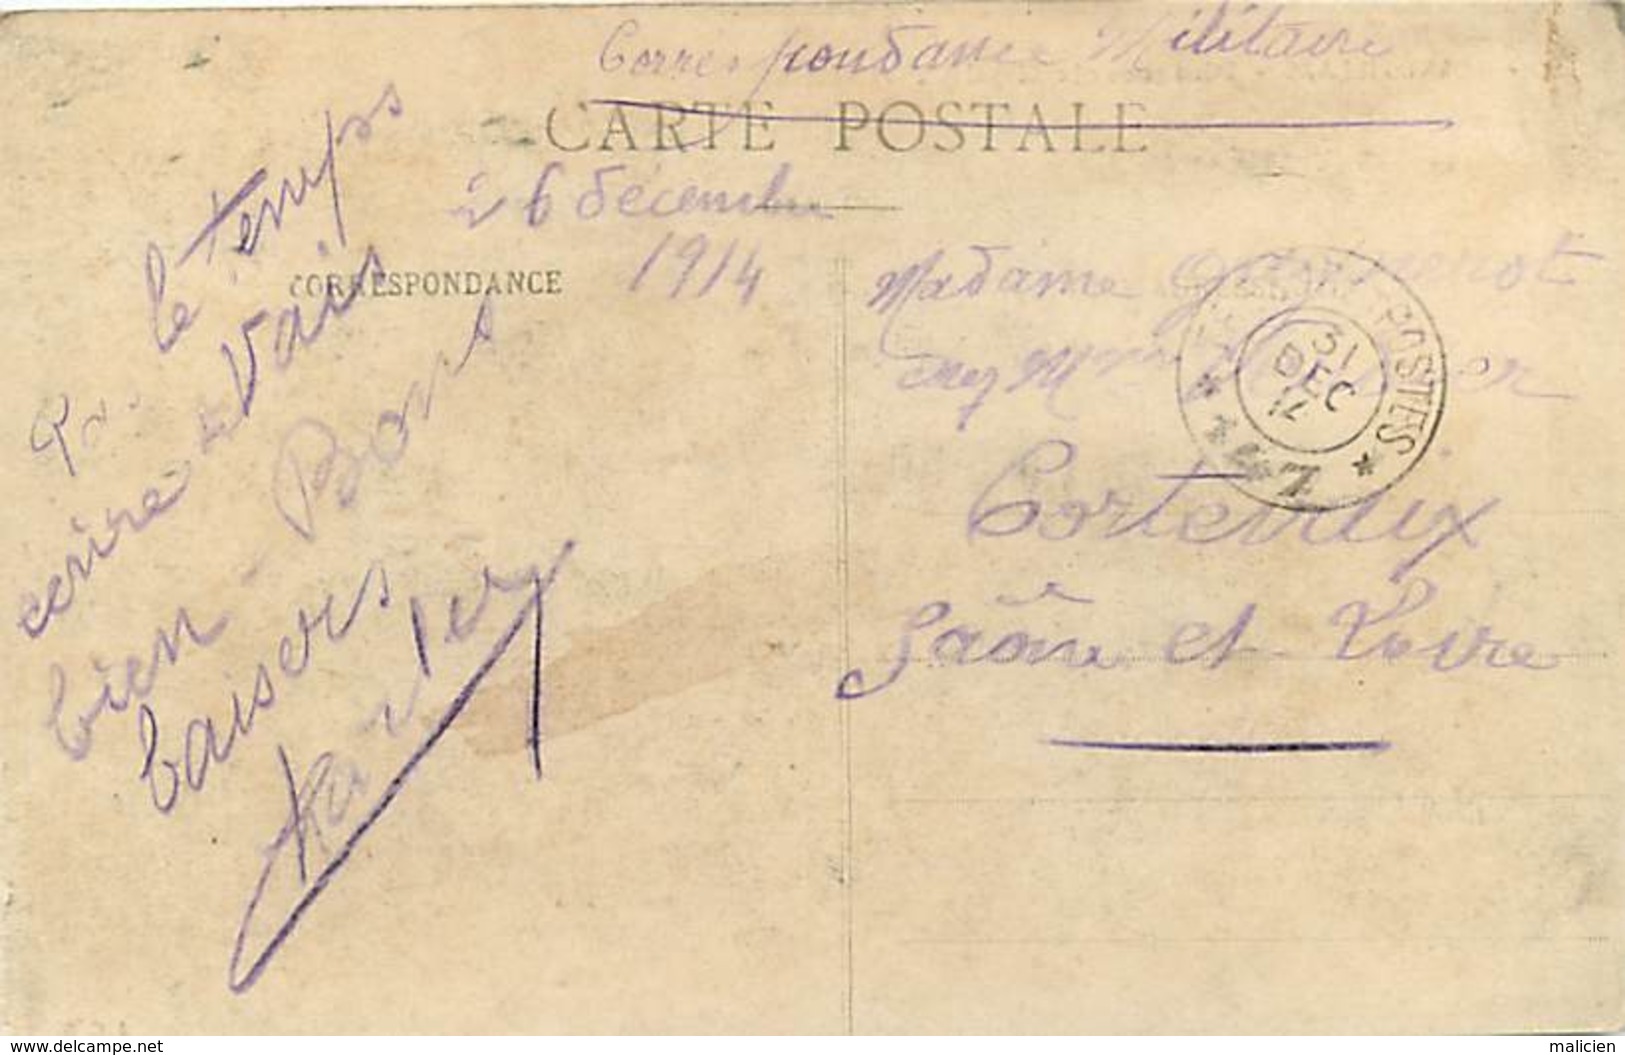 Correspondance Militaire
CARTE POSTALE
26 décembre
1914
CORRESPONDANCE
le temps
écrire - Vais
bien - Bons
baisers
Madame
chez Mme
Cortevaix
Saône et Loire
POSTES
31
DEC
14
* 47 *
www.delcampe.net
malicien